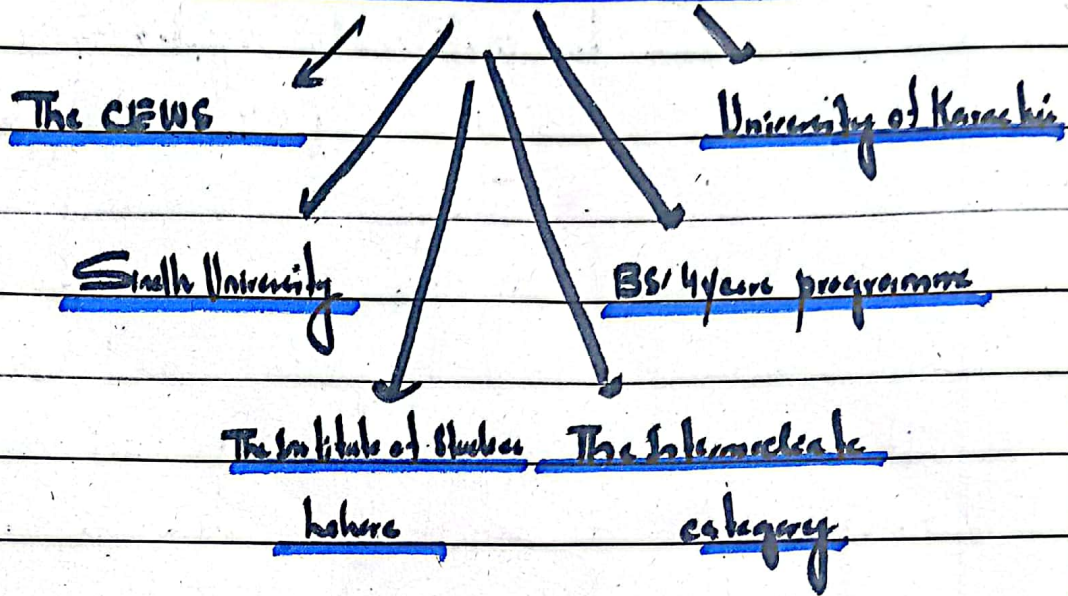 The CEWS
University of Karachi
Sindh University
BS/4years programme
The Institute of Studies The Intermediate
lahore category